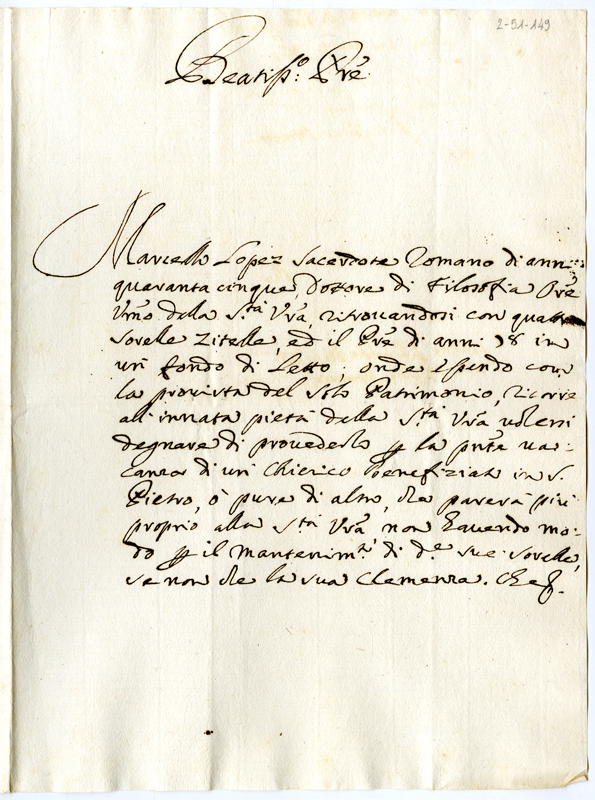 2-51-149
Beatiss.o Pre
Marcello Lopez Sacerdote Romano di anni
quaranta cinque, Dottore di Filosofia Ore
Umo della S.tà Vra, ritrovandosi con quattro
sorelle zitelle, ed il Pre di anni 78 in
un fondo di Letto; onde essendo con
la provista del solo Patrimonio, ricorre
all'innata pietà della S.tà Vra volersi
degnare di provederlo p la pnte va-
canza di un Chierico Benefiziato in S.
Pietro, ò pure di altro, che parerà più
proprio alla S.tà Vra non havendo mo-
do p il mantenim.to di d.e sue sorelle,
se non che la sua Clemenza. Che